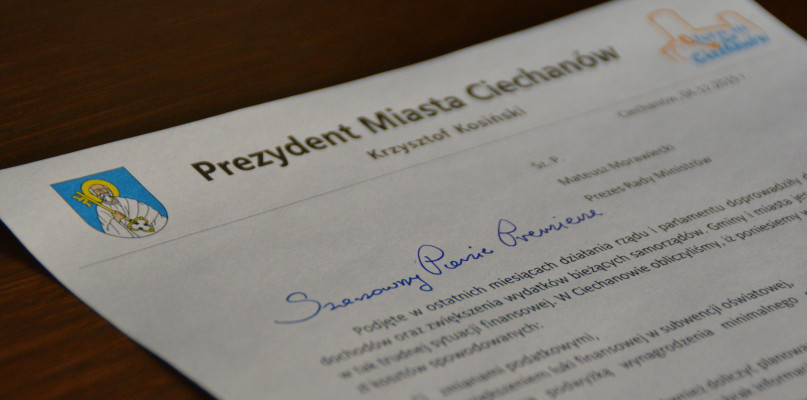 Prezydent Miasta Ciechanów
Krzysztof Kosiński
Ciechanów
Sz. P.
Mateusz Morawiecki
Prezes Rady Ministrów
Szanowny Panie Premierze
Podjęte w ostatnich miesiącach działania rządu i parlamentu doprowadziły
dochodów oraz zwiększenia wydatków bieżących samorządów. Gminy i miasta
w tak trudnej sytuacji finansowej. W Ciechanowie obliczyliśmy, iż poniesiemy
zł kosztów spowodowanych:
zmianami podatkowymi,
luki finansowej w subwencji oświatowej,
podwyżką wynagrodzenia minimalnego
również doliczyć
brak